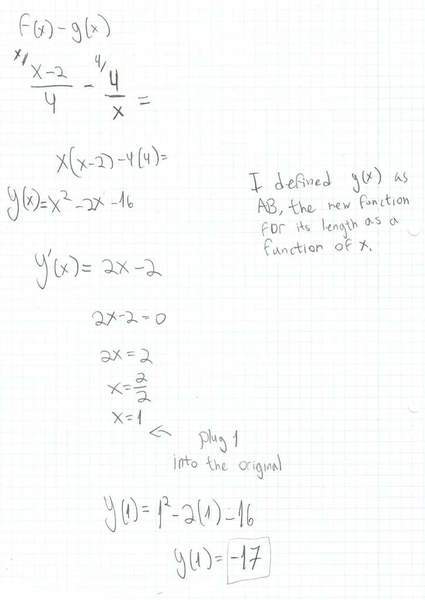 f(x) - g(x)
x/ x-2/4 - 4/ 4/x =
x(x-2) - 4(4) =
y(x) = x² - 2x - 16
y'(x) = 2x - 2
2x - 2 = 0
2x = 2
x = 2/2
x = 1
← plug 1
into the original
y(1) = 1² - 2(1) - 16
y(1) = -17
I defined y(x) as
AB, the new function
for its length as a
function of x.